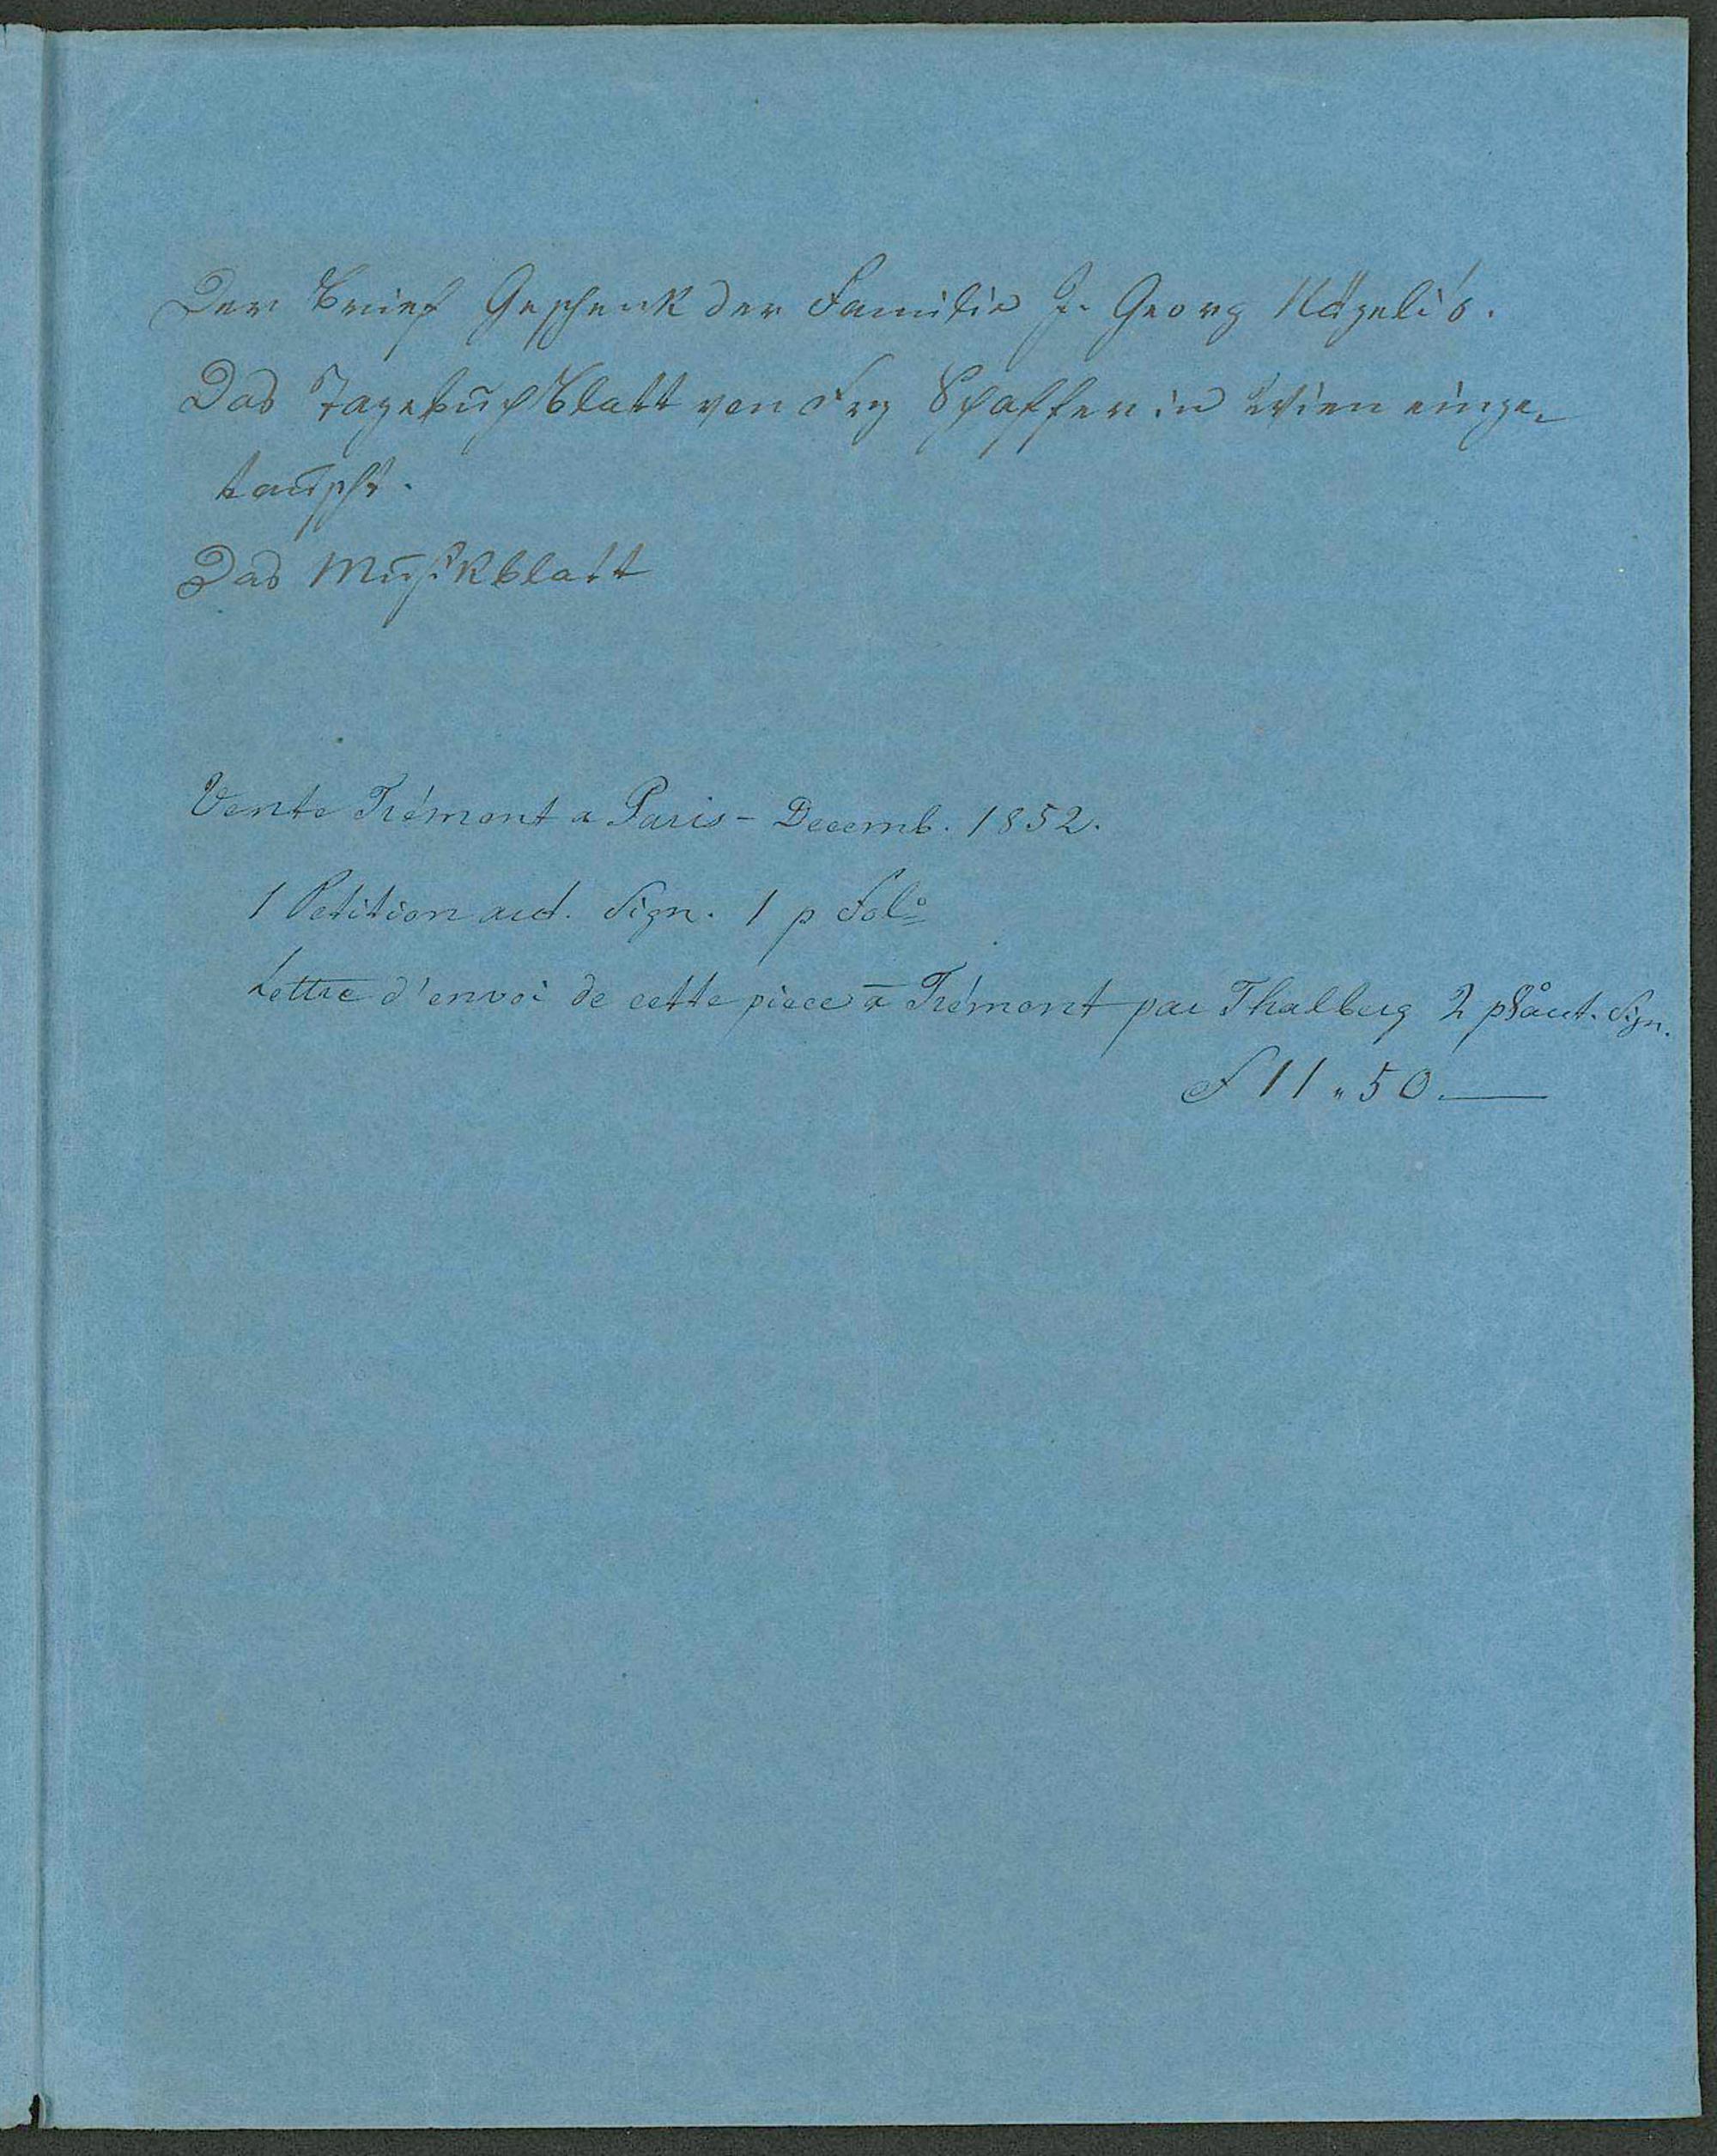 Der Brief Geschenk der Familie J. Georg Nägeli's.
Das Tagebuchblatt von Frz Schaffer in Wien einge-
tauscht.
Das Musikblatt
Vente Trémont a Paris - Decemb. 1852.
1 Petition aut. Sign. 1 p Folº
Lettre d'envoi de cette piece à Trémont par Thalberg 2 p 8º aut. Sign.
F 11 " 50.—